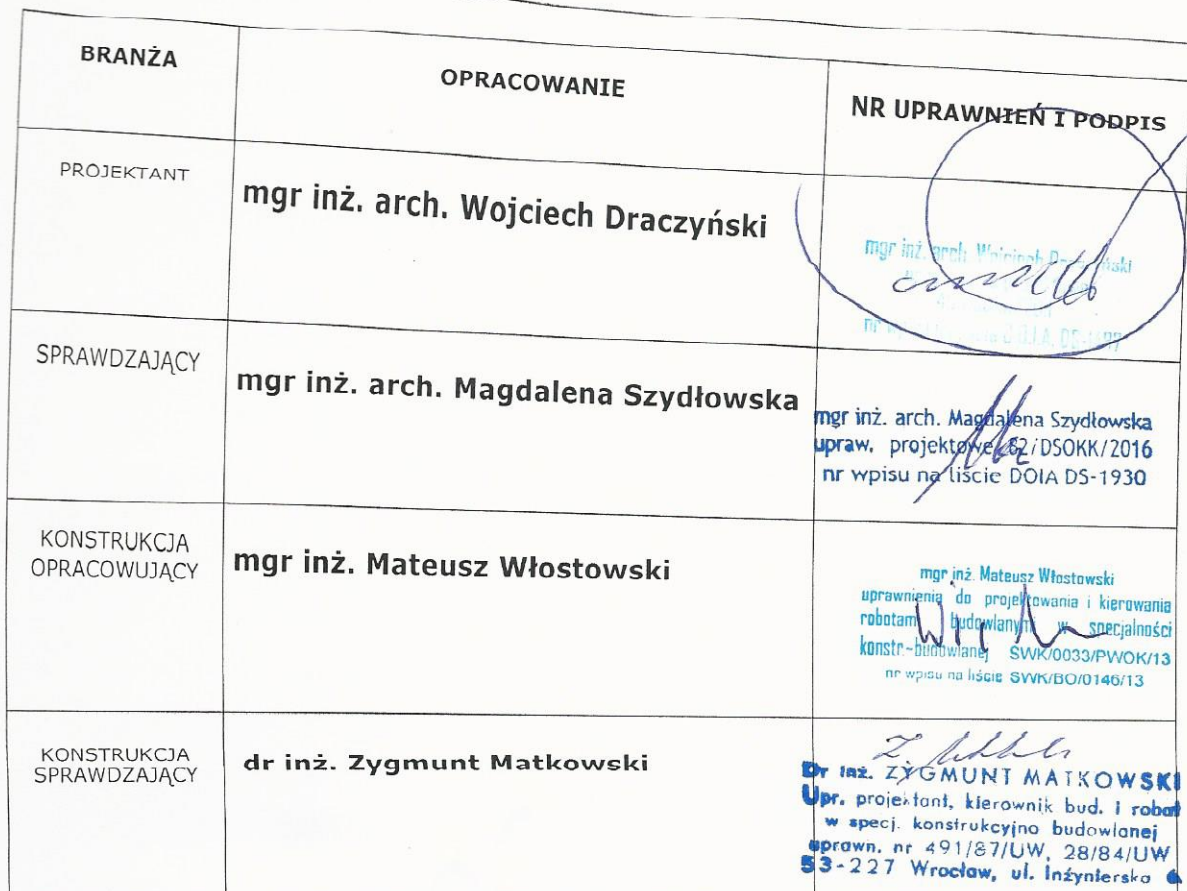 BRANŻA
OPRACOWANIE
NR UPRAWNIEŃ I PODPIS
PROJEKTANT
mgr inż. arch. Wojciech Draczyński
mgr inż. arch. Wojciech
SPRAWDZAJĄCY
mgr inż. arch. Magdalena Szydłowska
mgr inż. arch. Magdalena Szydłowska
upraw. projektowe 82/DSOKK/2016
nr wpisu na liście DOIA DS-1930
KONSTRUKCJA
OPRACOWUJĄCY
mgr inż. Mateusz Włostowski
mgr inż. Mateusz Włostowski
uprawnienia do projektowania i kierowania
robotami budowlanymi w specjalności
konstr-budowlanej SWK/0033/PWOK/13
nr wpisu na liście SWK/BO/0146/13
KONSTRUKCJA
SPRAWDZAJĄCY
dr inż. Zygmunt Matkowski
Dr inż. ZYGMUNT MATKOWSKI
Upr. projektant, kierownik bud. i robót
w specj. konstrukcyjno budowlanej
uprawn. nr 491/87/UW, 28/84/UW
53-227 Wrocław, ul. Inżynierska 6